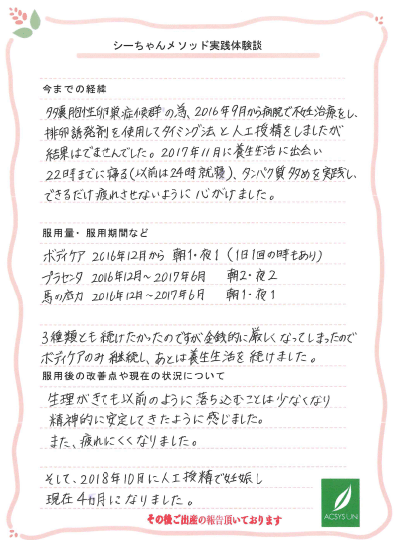 シーちゃんメソッド実践体験談
今までの経緯
多嚢胞性卵巣症候群の為、2016年9月から病院で不妊治療をし、
排卵誘発剤を使用してタイミング法と人工授精をしましたが
結果はでませんでした。2017年11月に養生生活に出会い
22時までに寝る(以前は24時就寝)、タンパク質多めを実践し、
できるだけ疲れさせないように心がけました。
服用量・服用期間など
ボディケア 2016年12月から 朝1・夜1 (1日1回の時もあり)
プラセンタ 2016年12月〜2017年6月 朝2・夜2
馬の底力 2016年12月〜2017年6月 朝1・夜1
3種類とも続けたかったのですが金銭的に厳しくなってしまったので
ボディケアのみ継続し、あとは養生生活を続けました。
服用後の改善点や現在の状況について
生理がきても以前のように落ち込むことは少なくなり
精神的に安定してきたように感じました。
また、疲れにくくなりました。
そして、2018年10月に人工授精で妊娠し
現在4ヶ月になりました。
その後ご出産の報告頂いております
ACSYS LIN